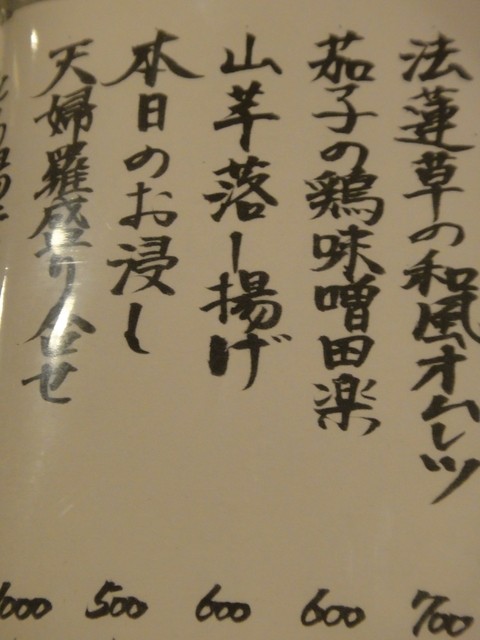 法蓮草の和風オムレツ
700
茄子の鶏味噌田楽
600
山芋落し揚げ
600
本日のお浸し
500
天婦羅盛り合せ
1000